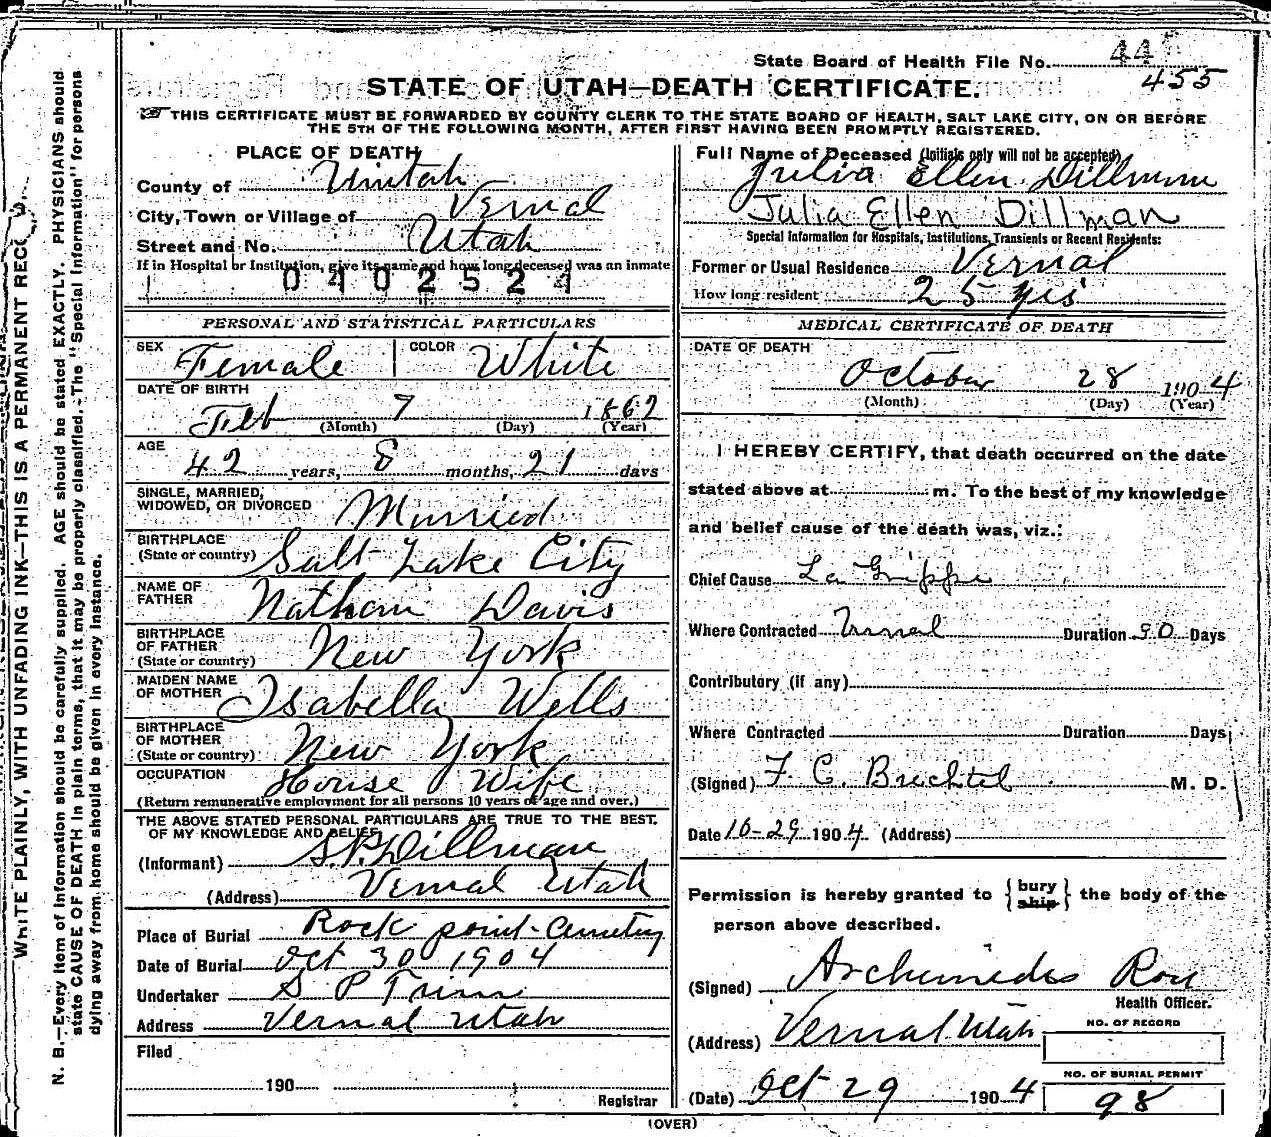 State Board of Health File No. 44
455
STATE OF UTAH—DEATH CERTIFICATE.
THIS CERTIFICATE MUST BE FORWARDED BY COUNTY CLERK TO THE STATE BOARD OF HEALTH, SALT LAKE CITY, ON OR BEFORE
THE 5TH OF THE FOLLOWING MONTH, AFTER FIRST HAVING BEEN PROMPTLY REGISTERED.
WRITE PLAINLY, WITH UNFADING INK—THIS IS A PERMANENT
N. B.—Every item of information should be carefully supplied. AGE should be stated EXACTLY. PHYSICIANS should
state CAUSE OF DEATH in plain terms, that it may be properly classified. The "Special Information" for persons
dying away from home should be given in every instance.
PLACE OF DEATH
County of Uintah
City, Town or Village of Vernal
Street and No. Utah
If in Hospital or Institution, give its name and how long deceased was an inmate
0402524
PERSONAL AND STATISTICAL PARTICULARS
SEX Female COLOR White
DATE OF BIRTH
Feb 7 1862
(Month) (Day) (Year)
AGE
42 years, 8 months, 21 days
SINGLE, MARRIED,
WIDOWED, OR DIVORCED Married
BIRTHPLACE
(State or country) Salt Lake City
NAME OF
FATHER Nathan Davis
BIRTHPLACE
OF FATHER
(State or country) New York
MAIDEN NAME
OF MOTHER Isabella Wells
BIRTHPLACE
OF MOTHER
(State or country) New York
OCCUPATION House Wife
(Return remunerative employment for all persons 10 years of age and over.)
THE ABOVE STATED PERSONAL PARTICULARS ARE TRUE TO THE BEST.
OF MY KNOWLEDGE AND BELIEF
(Informant) S.P. Dillman
(Address) Vernal Utah
Place of Burial Rock point Cemetry
Date of Burial Oct 30 1904
Undertaker S P Trim
Address Vernal Utah
Filed
190
Registrar
Full Name of Deceased (Initials only will not be accepted)
Julia Ellen Dillman
Julia Ellen Dillman
Special Information for Hospitals, Institutions, Transients or Recent Residents:
Former or Usual Residence Vernal
How long resident 25 yrs
MEDICAL CERTIFICATE OF DEATH
DATE OF DEATH
October 28 1904
(Month) (Day) (Year)
I HEREBY CERTIFY, that death occurred on the date
stated above at m. To the best of my knowledge
and belief cause of the death was, viz.:
Chief Cause La Grippe
Where Contracted Vernal Duration 90 Days
Contributory (if any)
Where Contracted Duration Days
(Signed) F. C. Brechtel M. D.
Date 10-29 1904 (Address)
Permission is hereby granted to { bury ship } the body of the
person above described.
(Signed) Archimedes Roy
Health Officer.
(Address) Vernal Utah
NO. OF RECORD
(Date) Oct 29 1904
NO. OF BURIAL PERMIT
98
(OVER)